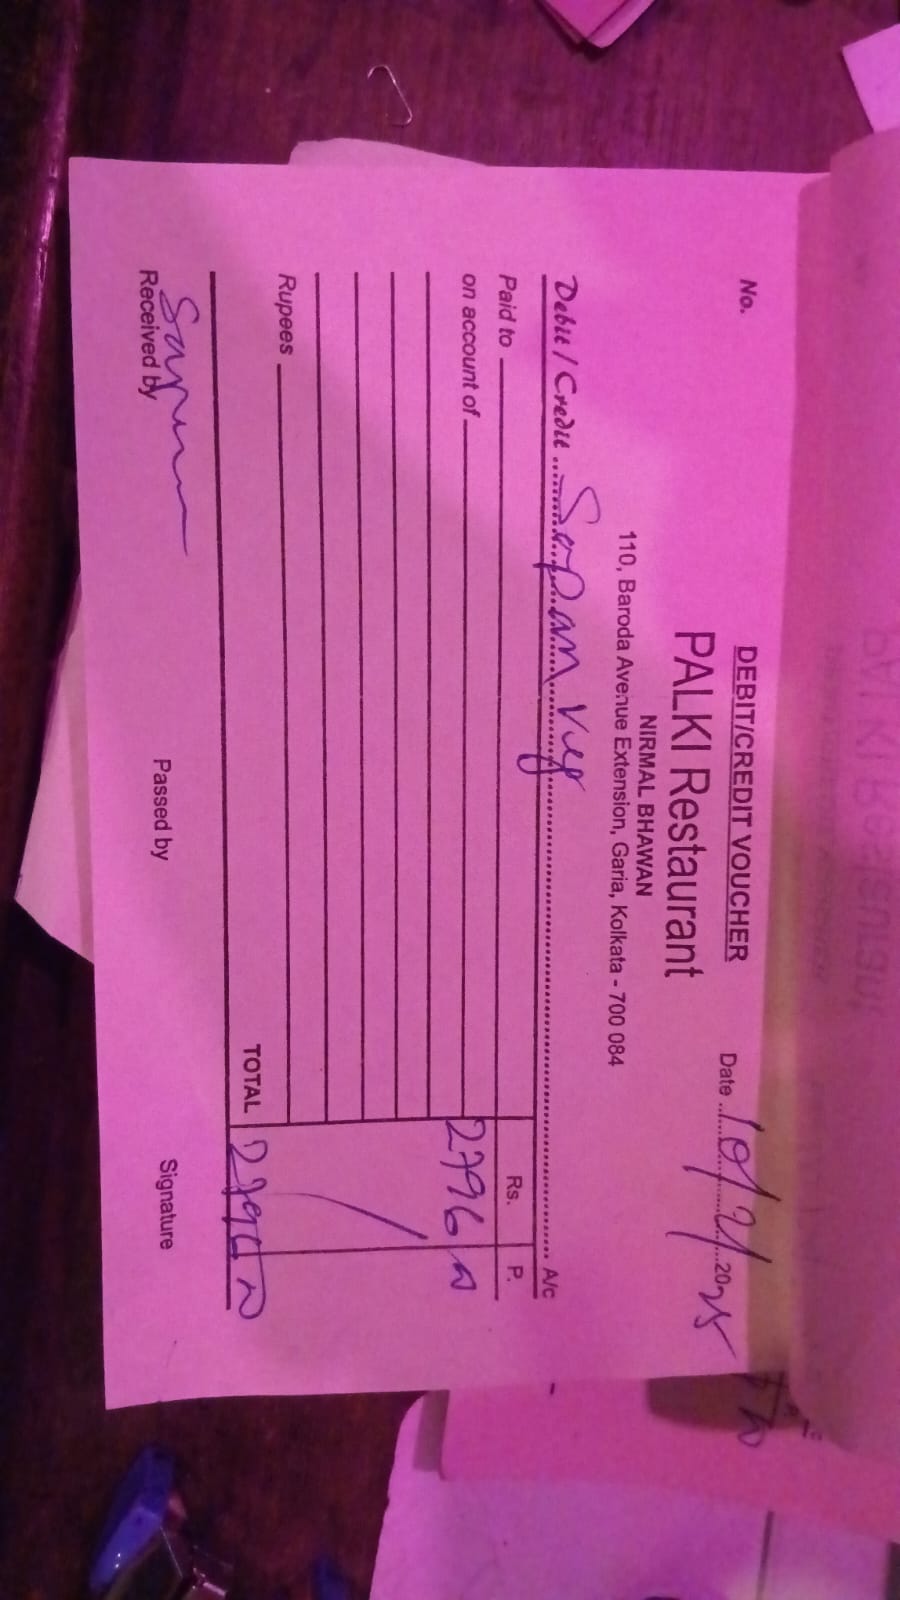 DEBIT/CREDIT VOUCHER
No.
Date 10/2/2025
PALKI Restaurant
NIRMAL BHAWAN
110, Baroda Avenue Extension, Garia, Kolkata - 700 084
Debit / Credit Sapan Veg A/c
Paid to Rs. P.
on account of 2796
Rupees
TOTAL 2796
Received by Passed by Signature